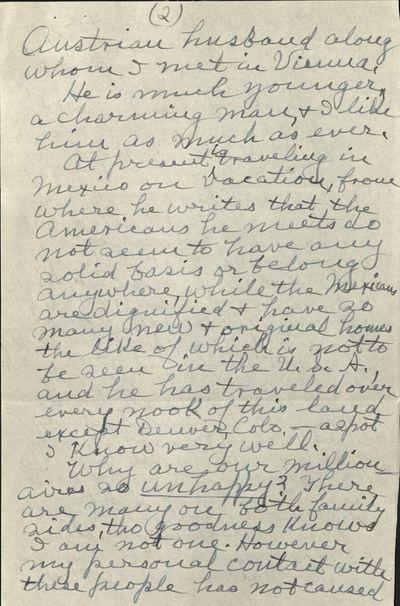 (2)
Austrian husband along
whom I met in Vienna.
He is much younger,
a charming man, & I like
him as much as ever.
At present is traveling in
Mexico on vacation, from
where he writes that the
Americans he meets do
not seem to have any
solid basis or belong
anywhere, while the Mexicans
are dignified & have so
many new & original homes
the like of which is not to
be seen in the U.S.A.,
and he has traveled over
every nook of this land
except Denver, Colo. — a spot
I know very well.
Why are our million-
aires so unhappy? There
are many on both family
sides, tho goodness knows
I am not one. However
my personal contact with
these people has not caused